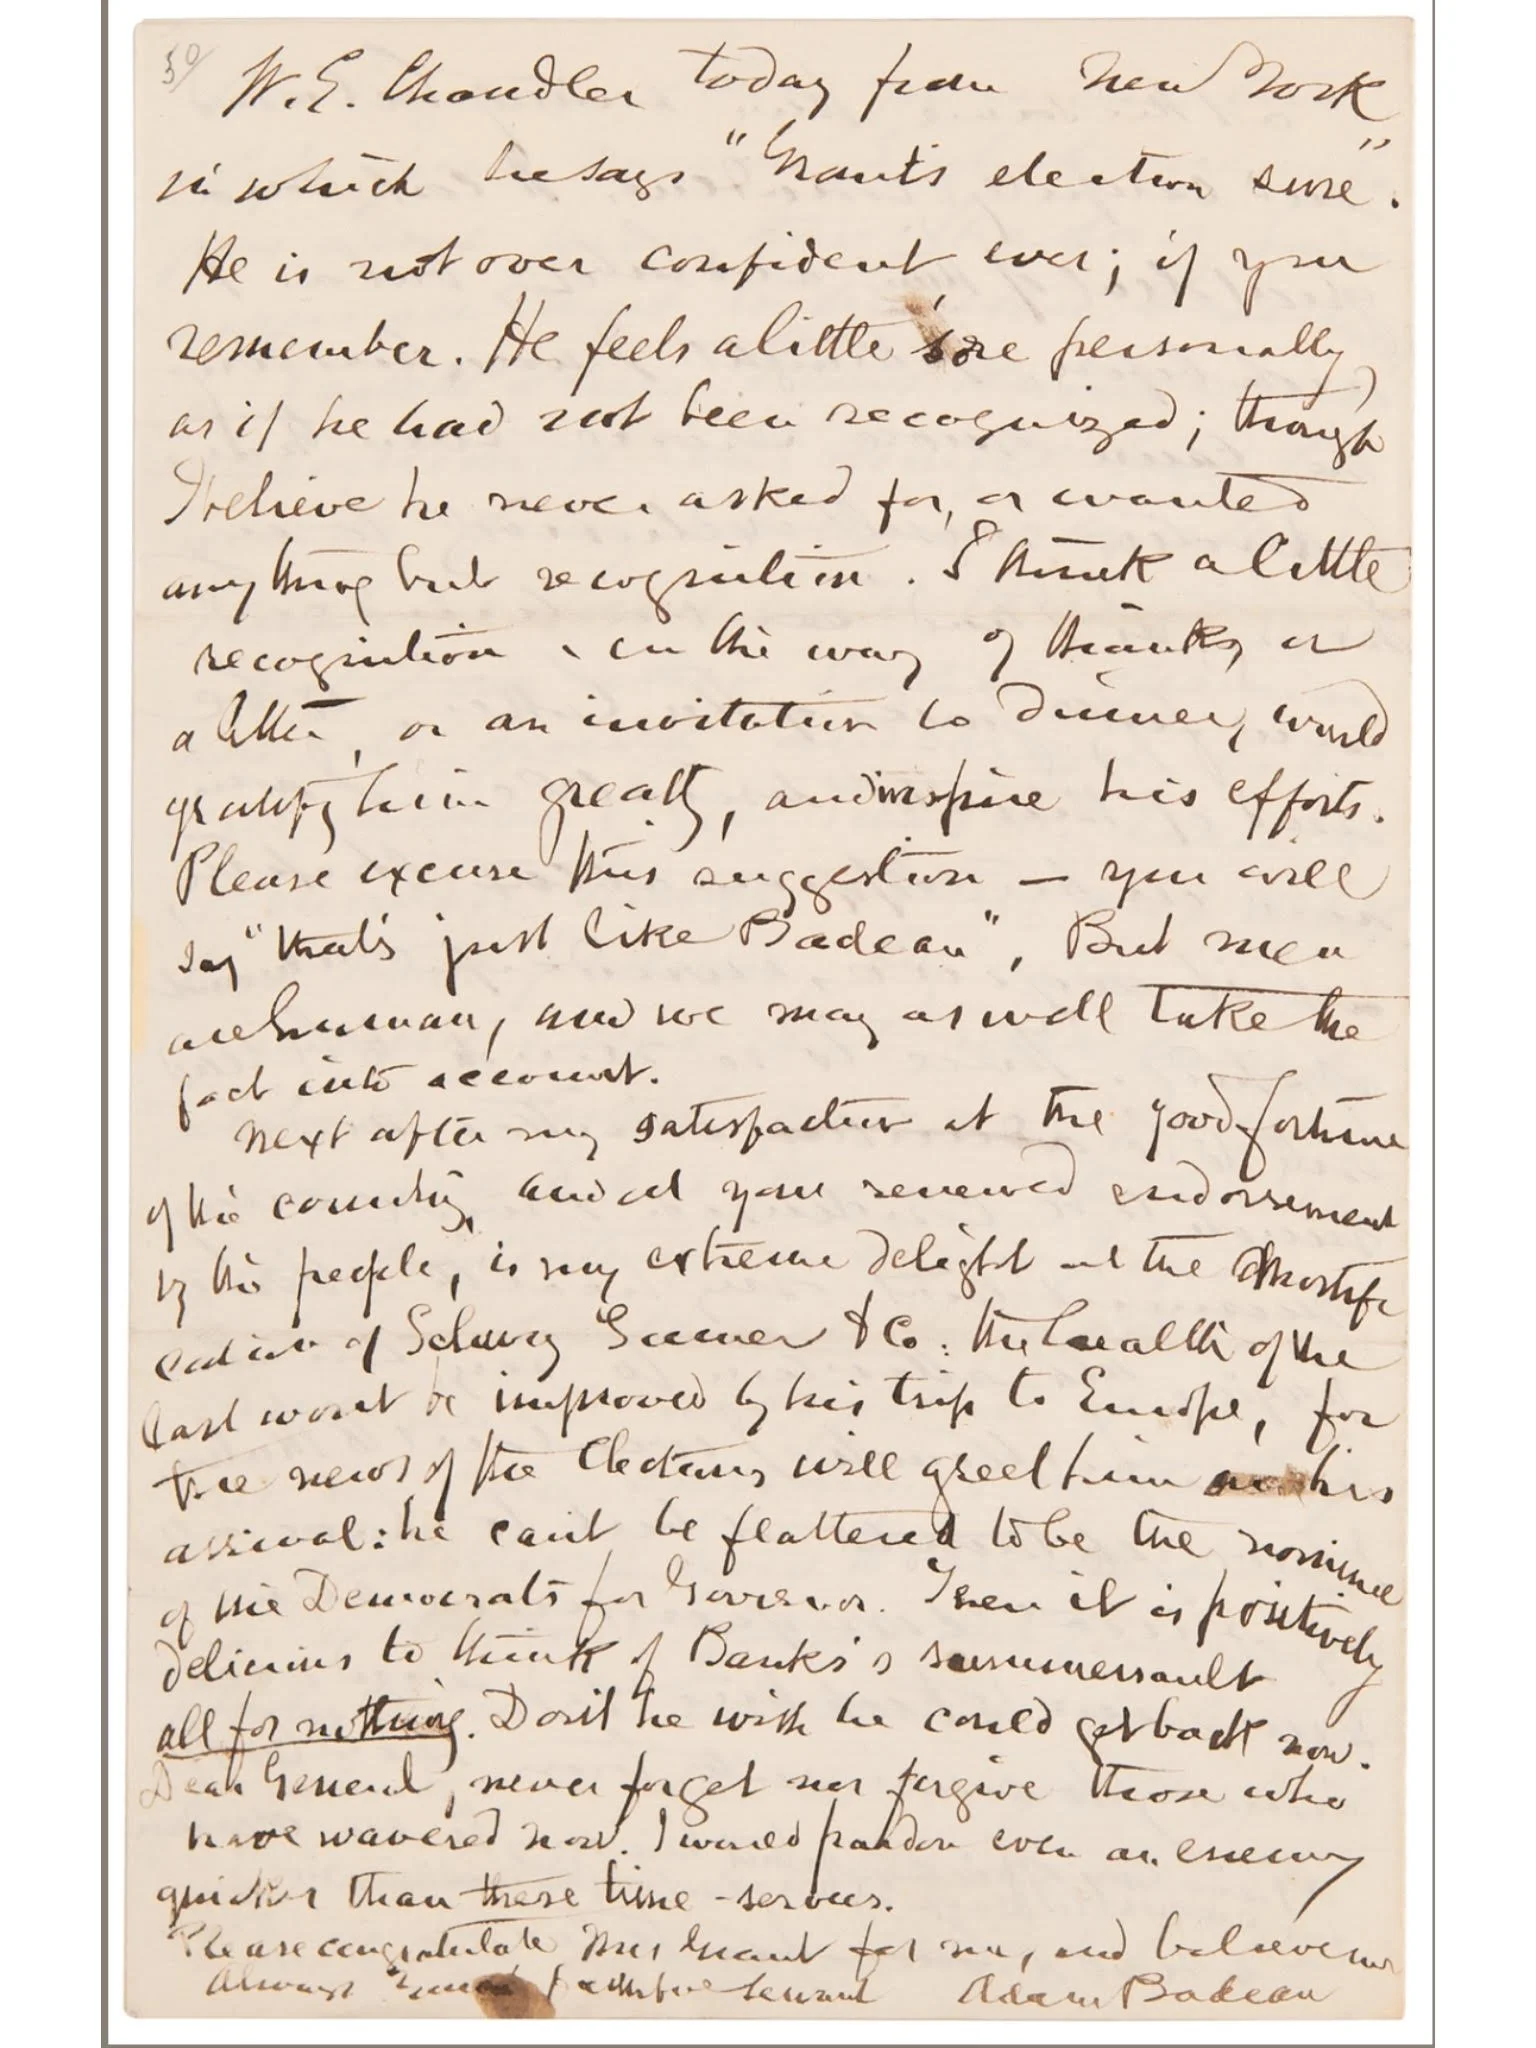 50
W. E. Chandler today from New York
in which he says "Grant's election sure".
He is not over confident ever; if you
remember. He feels a little sore personally,
as if he had not been recognized; though
I believe he never asked for, or wanted
anything but recognition. I think a little
recognition, in the way of thanks, or
a letter, or an invitation to dinner, would
gratify him greatly, and inspire his efforts.
Please excuse this suggestion — you will
say "that's just like Badeau", But men
are human, and we may as well take the
fact into account.
Next after my satisfaction at the good fortune
of the country, and at your renewed endorsement
by the people, is my extreme delight at the mortifi
cation of Schurz Sumner & Co: the health of the
last wont be improved by his trip to Europe, for
the news of the Elections will greet him on his
arrival: he can't be flattered to be the nominee
of the Democrats for Governor. Then it is positively
delicious to think of Banks's summersault
all for nothing. Don't he wish he could get back now.
Dear General, never forget nor forgive those who
have wavered now. I would pardon even an enemy
quicker than these time-servers.
Please congratulate Mrs Grant for me, and believe me
Always Your faithful servant Adam Badeau